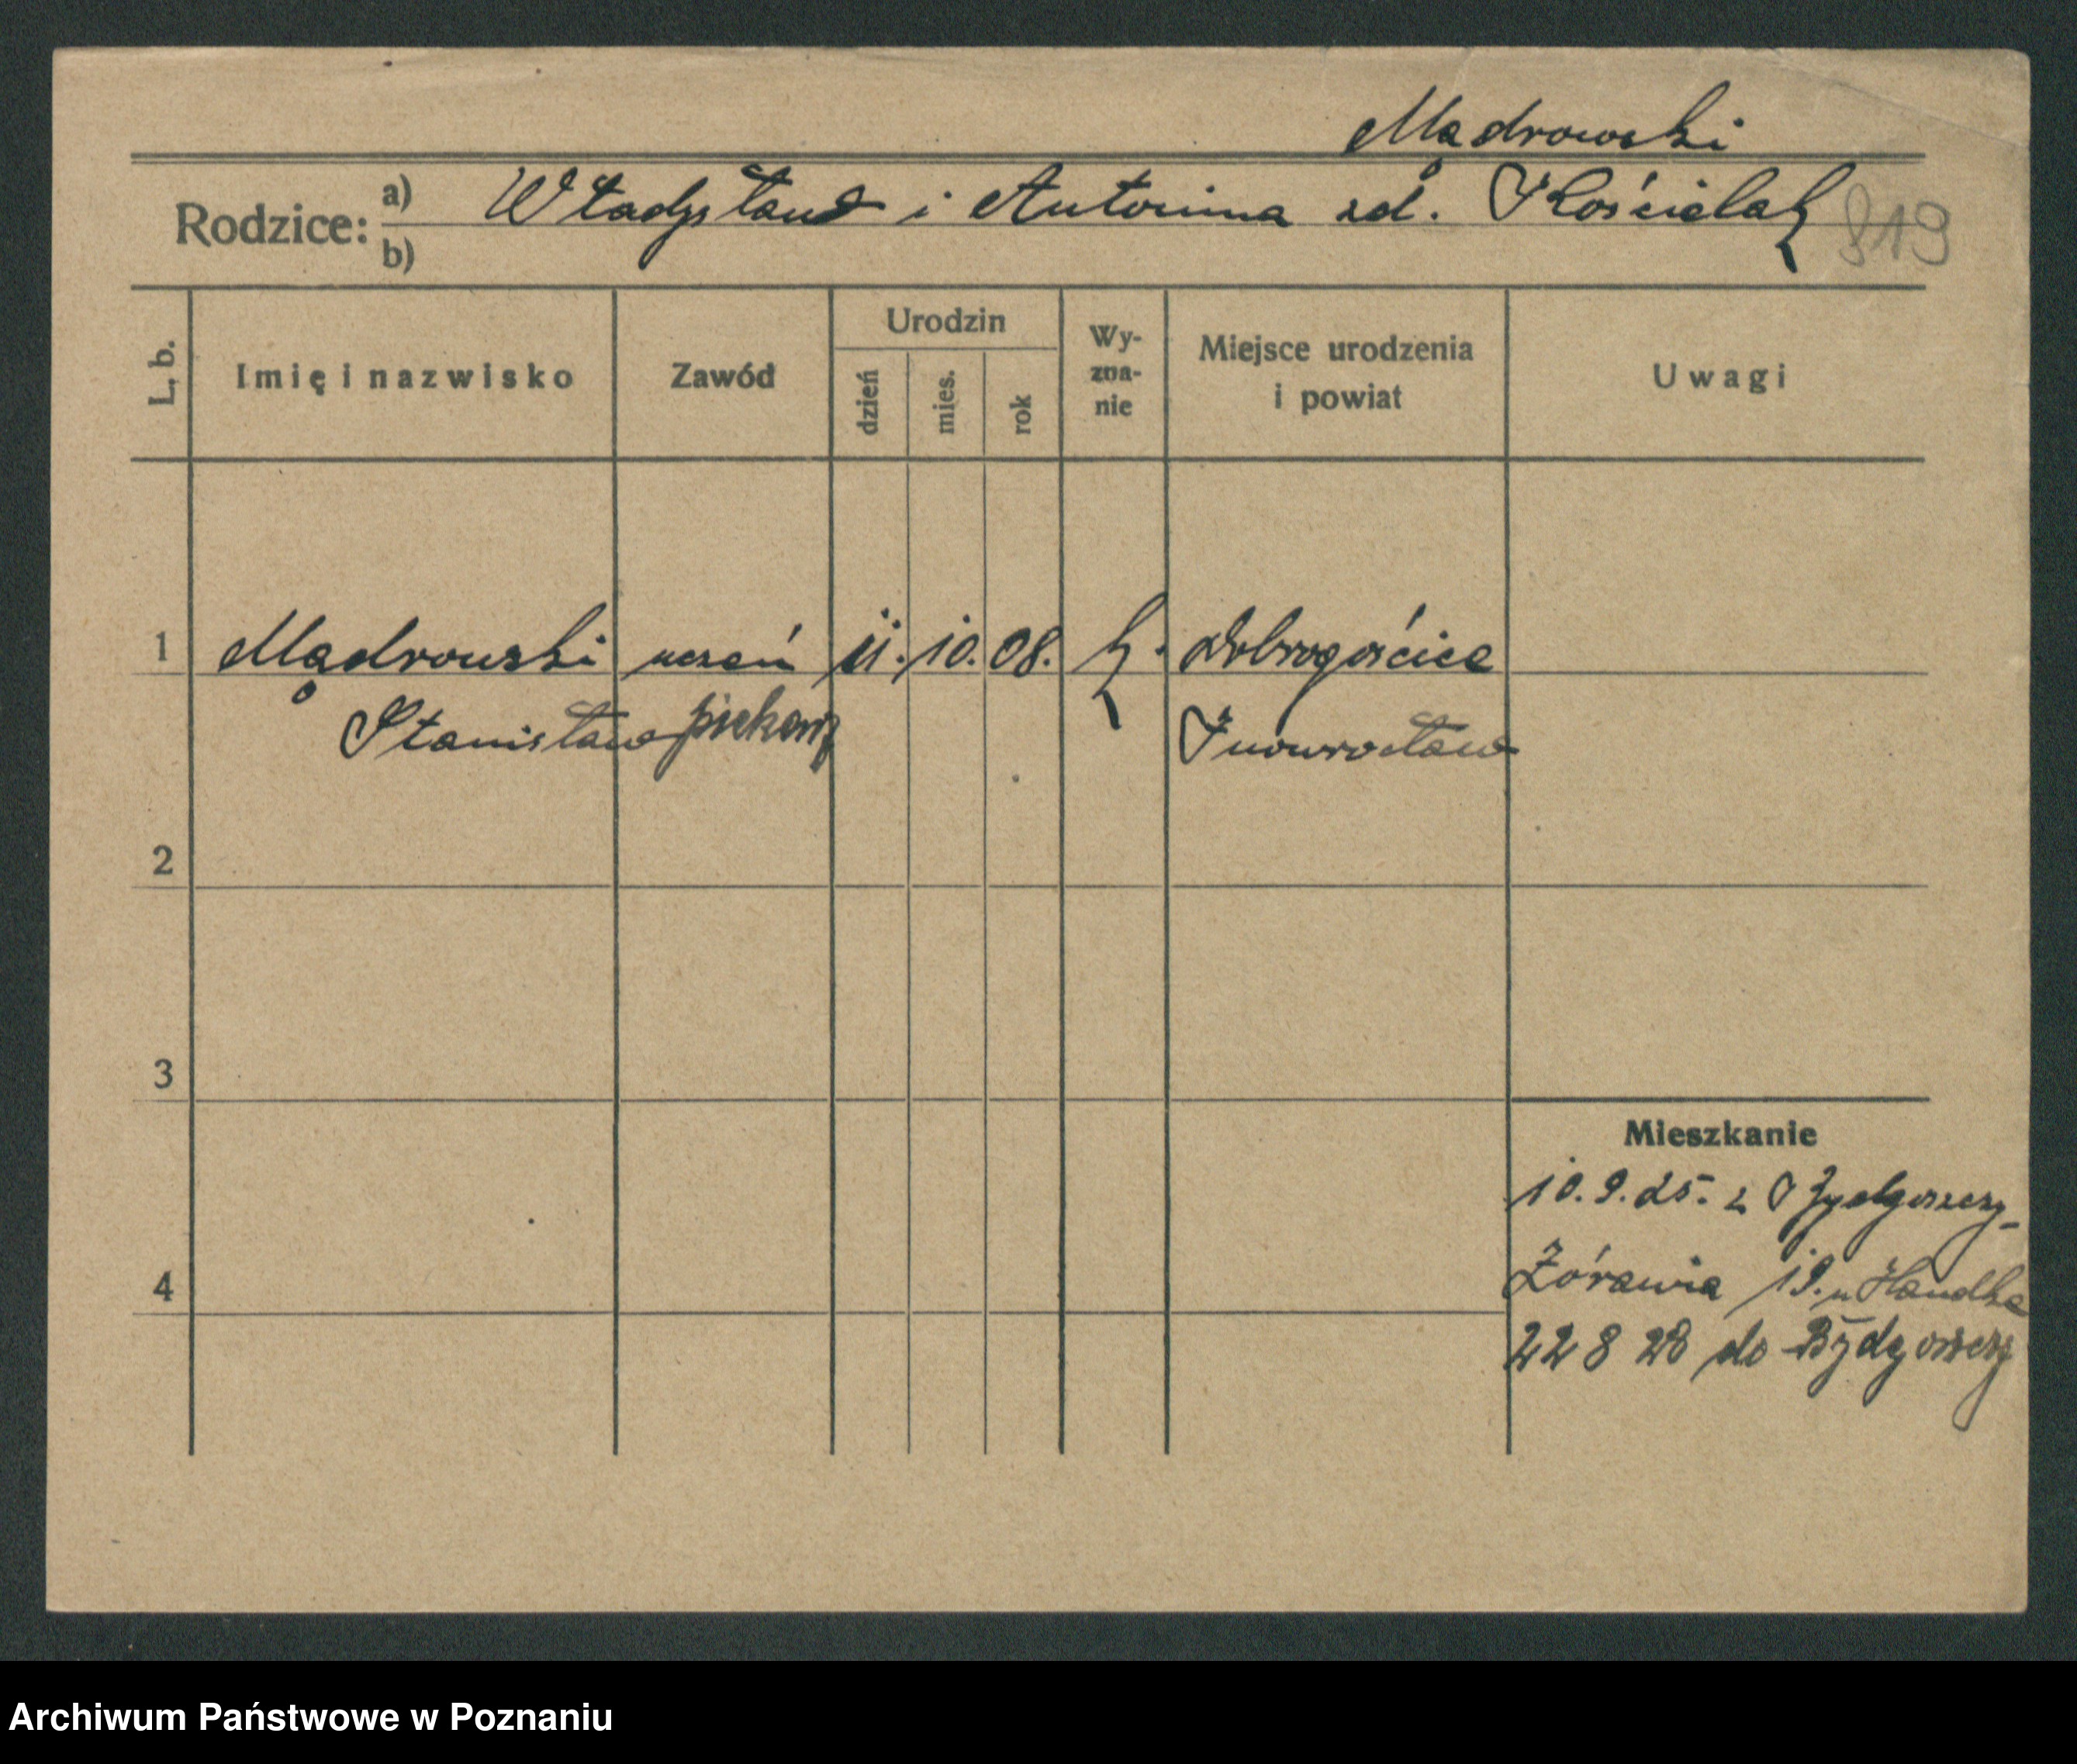 Mądrowski
Rodzice: a) Władysław i Antonina zd. Kościelak
b)
819
L. b.
Imię i nazwisko
Zawód
Urodzin
dzień
mies.
rok
Wy-
zna-
nie
Miejsce urodzenia
i powiat
Uwagi
1 Mądrowski uczeń 11. 10. 08. k. Dobrogościce
Stanisław piekarz Inowrocław
2
3
Mieszkanie
10.9.25. z Bydgoszczy
4 Żórawia 19. u Handke
22 8 28 do Bydgoszczy
Archiwum Państwowe w Poznaniu